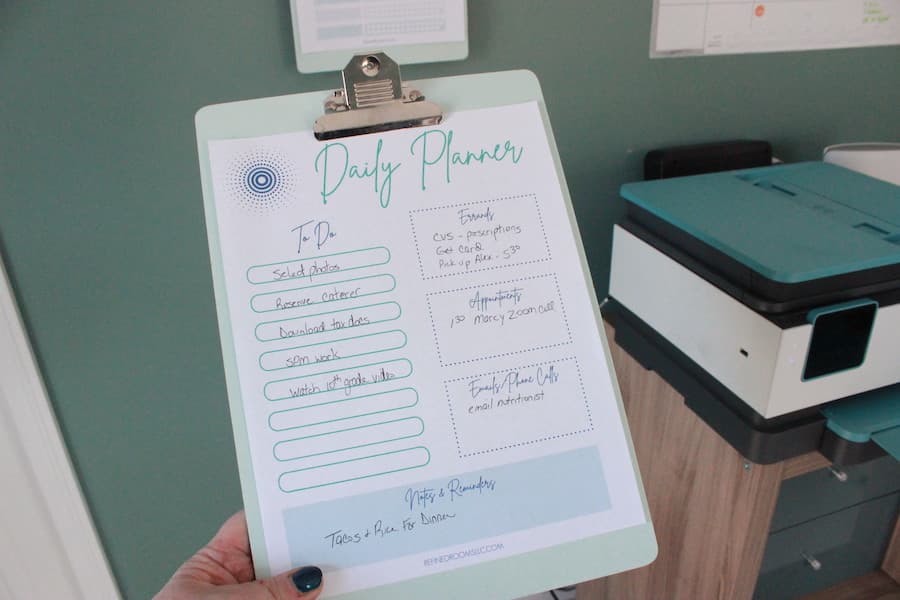 Daily Planner
To Do
Select photos
Reserve Caterer
Download tax docs
SPM work
Watch 10th grade video
Errands
CVS - perscriptions
Get Card
Pick up Alex - 5:30
Appointments
1:30 Marcy Zoom call
Emails/Phone Calls
email nutritionist
Notes & Reminders
Tacos & Rice For Dinner
REFINEDROOMSLLC.COM